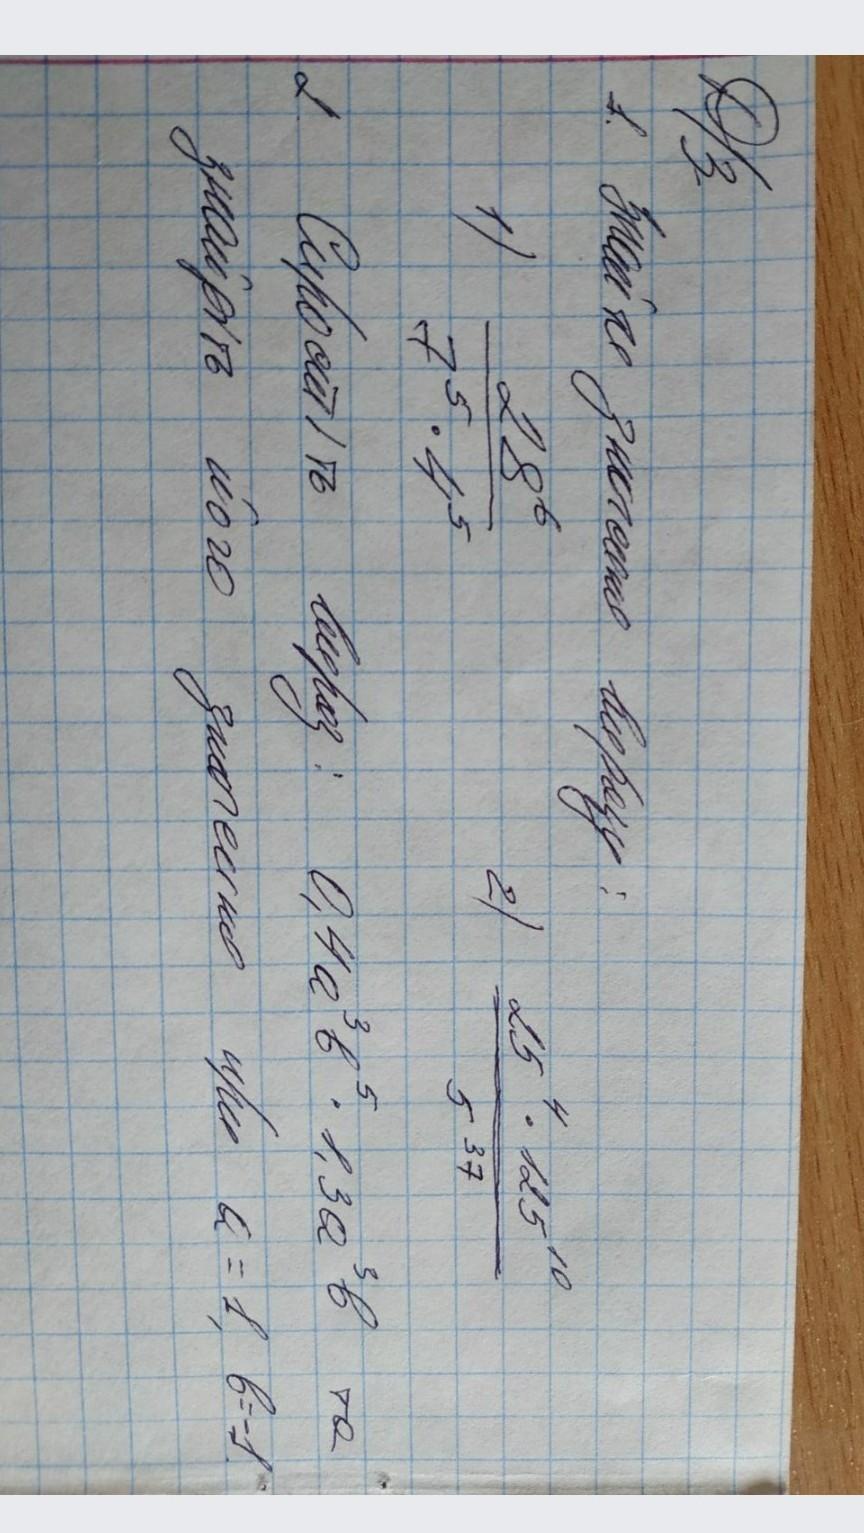 Д/З
1. Знайти значення виразу:
1) 28⁶ / 7⁵ · 4⁵ 2) 25⁴ · 125¹⁰ / 5³⁷
2. Спростіть вираз: 0,4a³b⁵ · 1,3a³b та
знайдіть його значення при a = 1, b = -1.